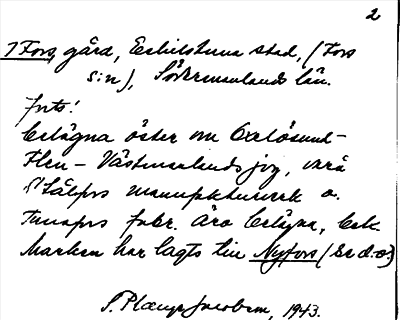 2
? Fors, gård, Eskilstuna stad, (Fors
s:n), Södermanlands län.
forts:
belägna öster om Oxelösund-
Flen - Västmanlands jvg, varå
manufakturverk o.
Tunafors fabr. äro belägna, bek.
Marken har lagts till Nyfors (se d.o.)
S. Jacobson, 1943.